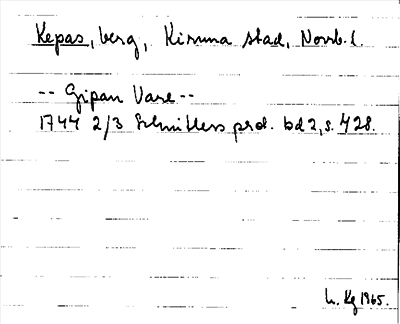 Kepas, berg, Kiruna stad, Norrb. l.
-- Gipan Vare --
1744 2/3 Schnitlers prot. bd 2, s. 428.
L. Kg 1965.